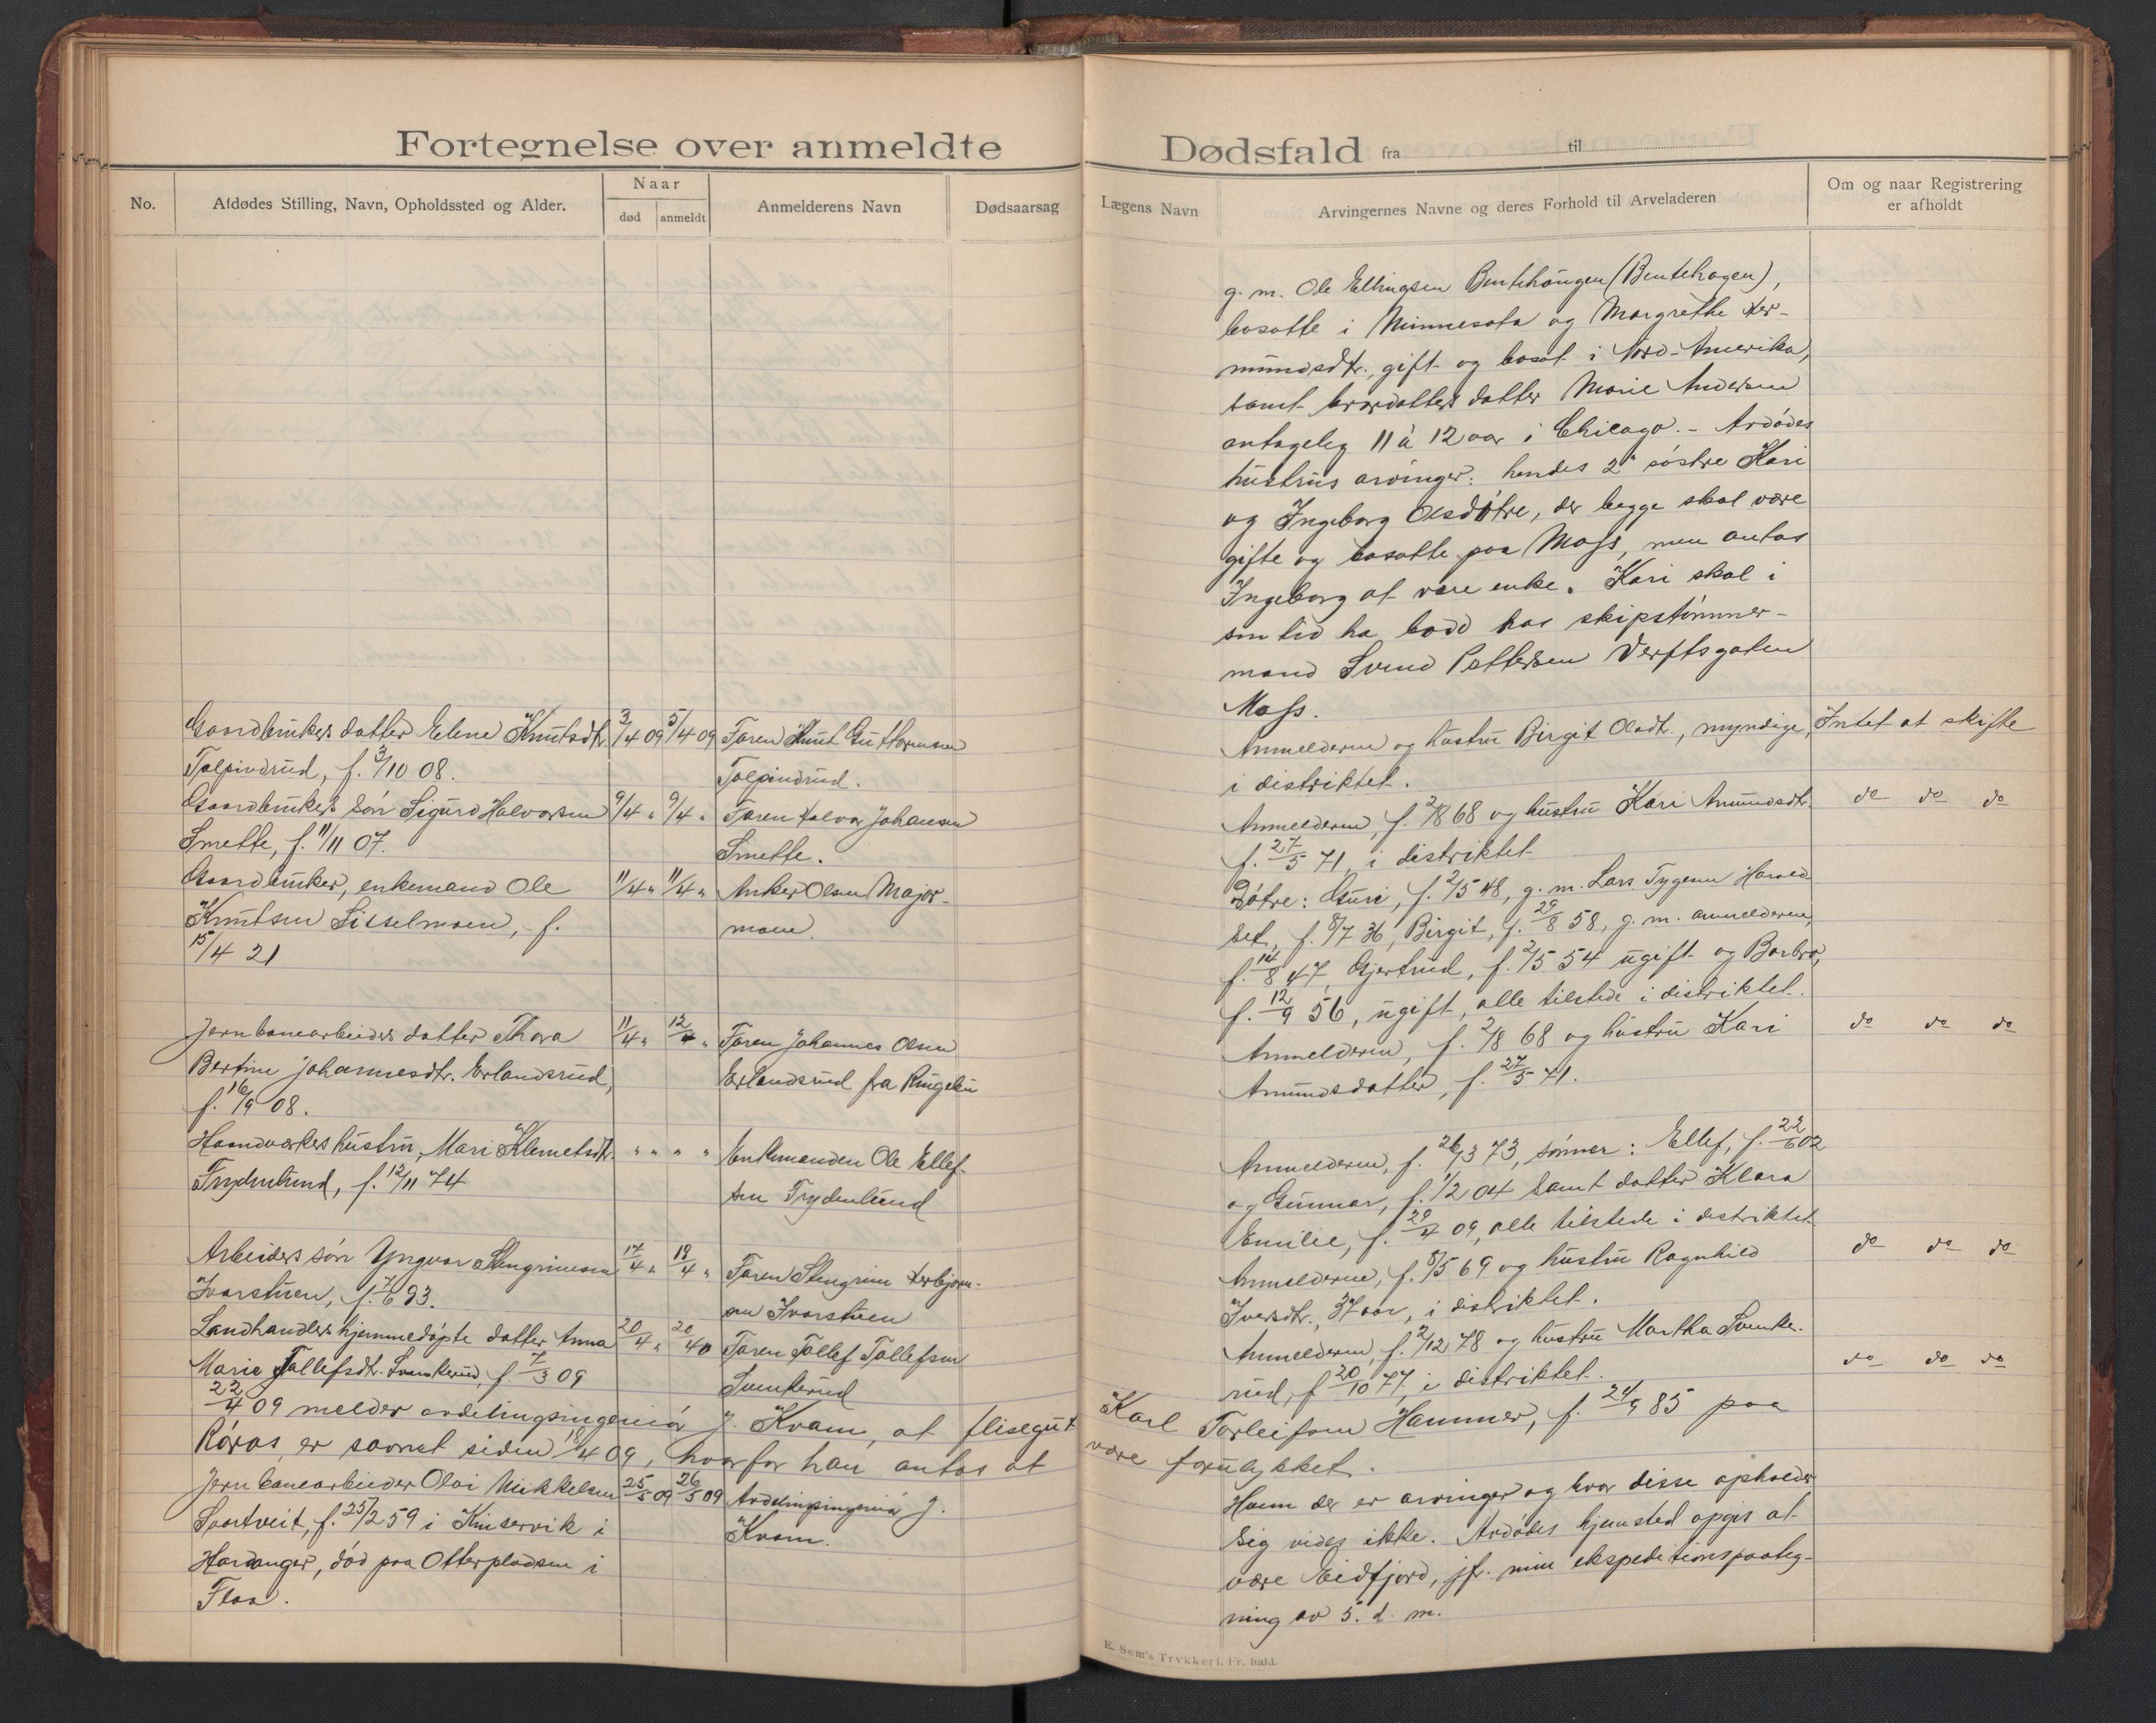 Fortegnelse over anmeldte
No.
Afdødes Stilling, Navn, Opholdssted og Alder.
Naar
død
anmeldt
Anmelderens Navn
Dødsaarsag
Gaardbrukers datter Elene Knutsdtr. 3/4 09 5/4 09 Faren Knut Guttormsen
Tolpinrud, f. 3/10 08. Tolpinrud.
Gaardbrukers søn Sigurd Halvorsen 9/4 " 9/4 " Faren Halvor Johansen
Smette, f. 11/11 07. Smette.
Gaardbruker, enkemand Ole 11/4 " 11/4 " Anker Olsen Major-
Knutsen Sisselmoen, f. moen.
15/4 21
Jernbanearbeiders datter Thora 11/4 " 12/4 " Faren Johannes Olsen
Bertine Johannesdtr. Erlandsrud, Erlandsrud fra Ringebu
f. 16/9 08.
Haandverkers hustru, Mari Klemetsdtr. " " " " Enkemanden Ole Ellef-
Frydenlund, f. 12/11 74 sen Frydenlund
Arbeiders søn Yngvar Stengrimsen 17/4 " 19/4 " Faren Stengrim Herbjørn-
Ivarstuen, f. 7/6 93. sen Ivarstuen
Landhandlers hjemmedøpte datter Anna 20/4 " 20/4 0 Faren Tollef Tollefsen
Marie Tollefsdtr. Svenkerud, f. 7/3 09 Svenkerud
22/4 09 melder avdelingsingeniør J. Kvam, at flisegut
Røros, er savnet siden 18/4 09, hvorfor han antas at
Jernbanearbeider Olai Mikkelsen 25/5 09 26/5 09 Avdelingsingeniør J.
Svartveit, f. 25/2 59 i Kinservik i Kvam.
Hardanger, død paa Otterpladsen i
Flaa.
Dødsfald fra til
Lægens Navn
Arvingernes Navne og deres Forhold til Arveladeren
Om og naar Registrering
er afholdt
g. m. Ole Ellingsen Bentehaugen (Bentehagen),
bosatte i Minnesota og Margrethe Her-
mundsdtr., gift og bosat i Nord-Amerika,
samt brordatters datter Marie Andersen
antagelig 11 à 12 aar i Chicago. - Avdødes
hustrus arvinger: hendes 2 søstre Kari
og Ingeborg Olsdøtre, der begge skal være
gifte og bosatte paa Moss, men antas
Ingeborg at være enke. Kari skal i
sin tid ha bodd hos skipstømmer-
mand Svend Pettersen Verftsgaten
Moss.
Anmelderen og hustru Birgit Olsdt., myndige, Intet at skifte
i distriktet.
Anmelderen, f. 2/8 68 og hustru Kari Amundsdtr. do do do
f. 27/5 71, i distriktet
Døtre: Guri, f. 2/5 48, g. m. Lars Tygesen Harald
set, f. 8/7 36, Birgit, f. 29/8 58, g. m. anmelderen,
f. 14/8 47, Gjertrud, f. 2/5 54 ugift og Barbro,
f. 12/9 56, ugift, alle tilstede i distriktet.
Anmelderen, f. 2/8 68 og hustru Kari do do do
Amundsdatter, f. 27/5 71.
Anmelderen, f. 26/3 73, sønner: Ellef, f. 22/6 02
og Gunnar, f. 1/2 04 samt datter Klara
Emilie, f. 29/4 09, alle tilstede i distriktet
Anmelderen, f. 8/5 69 og hustru Ragnhild do do do
Iversdtr., 37 aar, i distriktet.
Anmelderen, f. 2/12 78 og hustru Martha Svenke-
rud, f. 20/10 77, i distriktet. do do do
Karl Torleifsen Hammer, f. 24/9 85 paa
være forulykket.
Hvem der er arvinger og hvor disse opholder
sig vides ikke. Avdødes hjemsted opgis at
være Eidfjord, jfr. min ekspeditionspaateg-
ning av 5. d. m.
E. Sem's Trykkeri. Fr.hald.